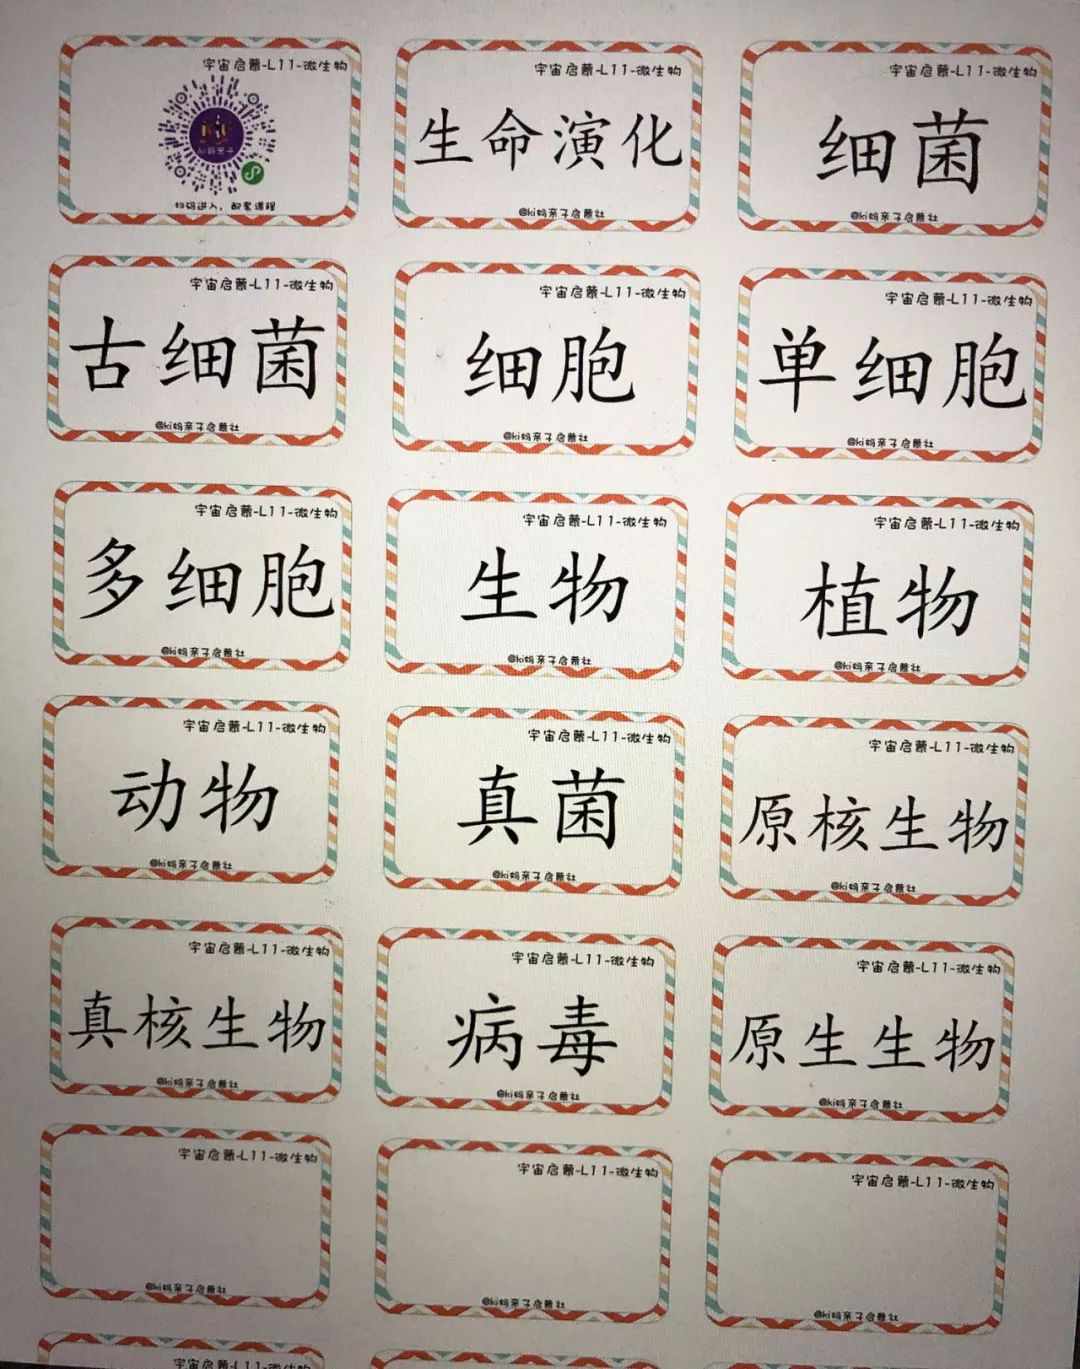 宇宙启蒙-L11-微生物
扫码进入，配套课程
宇宙启蒙-L11-微生物
生命演化
@ki妈亲子启蒙社
宇宙启蒙-L11-微生物
细菌
@ki妈亲子启蒙社
宇宙启蒙-L11-微生物
古细菌
@ki妈亲子启蒙社
宇宙启蒙-L11-微生物
细胞
@ki妈亲子启蒙社
宇宙启蒙-L11-微生物
单细胞
@ki妈亲子启蒙社
宇宙启蒙-L11-微生物
多细胞
@ki妈亲子启蒙社
宇宙启蒙-L11-微生物
生物
@ki妈亲子启蒙社
宇宙启蒙-L11-微生物
植物
@ki妈亲子启蒙社
宇宙启蒙-L11-微生物
动物
@ki妈亲子启蒙社
宇宙启蒙-L11-微生物
真菌
@ki妈亲子启蒙社
宇宙启蒙-L11-微生物
原核生物
@ki妈亲子启蒙社
宇宙启蒙-L11-微生物
真核生物
@ki妈亲子启蒙社
宇宙启蒙-L11-微生物
病毒
@ki妈亲子启蒙社
宇宙启蒙-L11-微生物
原生生物
@ki妈亲子启蒙社
宇宙启蒙-L11-微生物
@ki妈亲子启蒙社
宇宙启蒙-L11-微生物
@ki妈亲子启蒙社
宇宙启蒙-L11-微生物
@ki妈亲子启蒙社
宇宙启蒙-L11-微生物